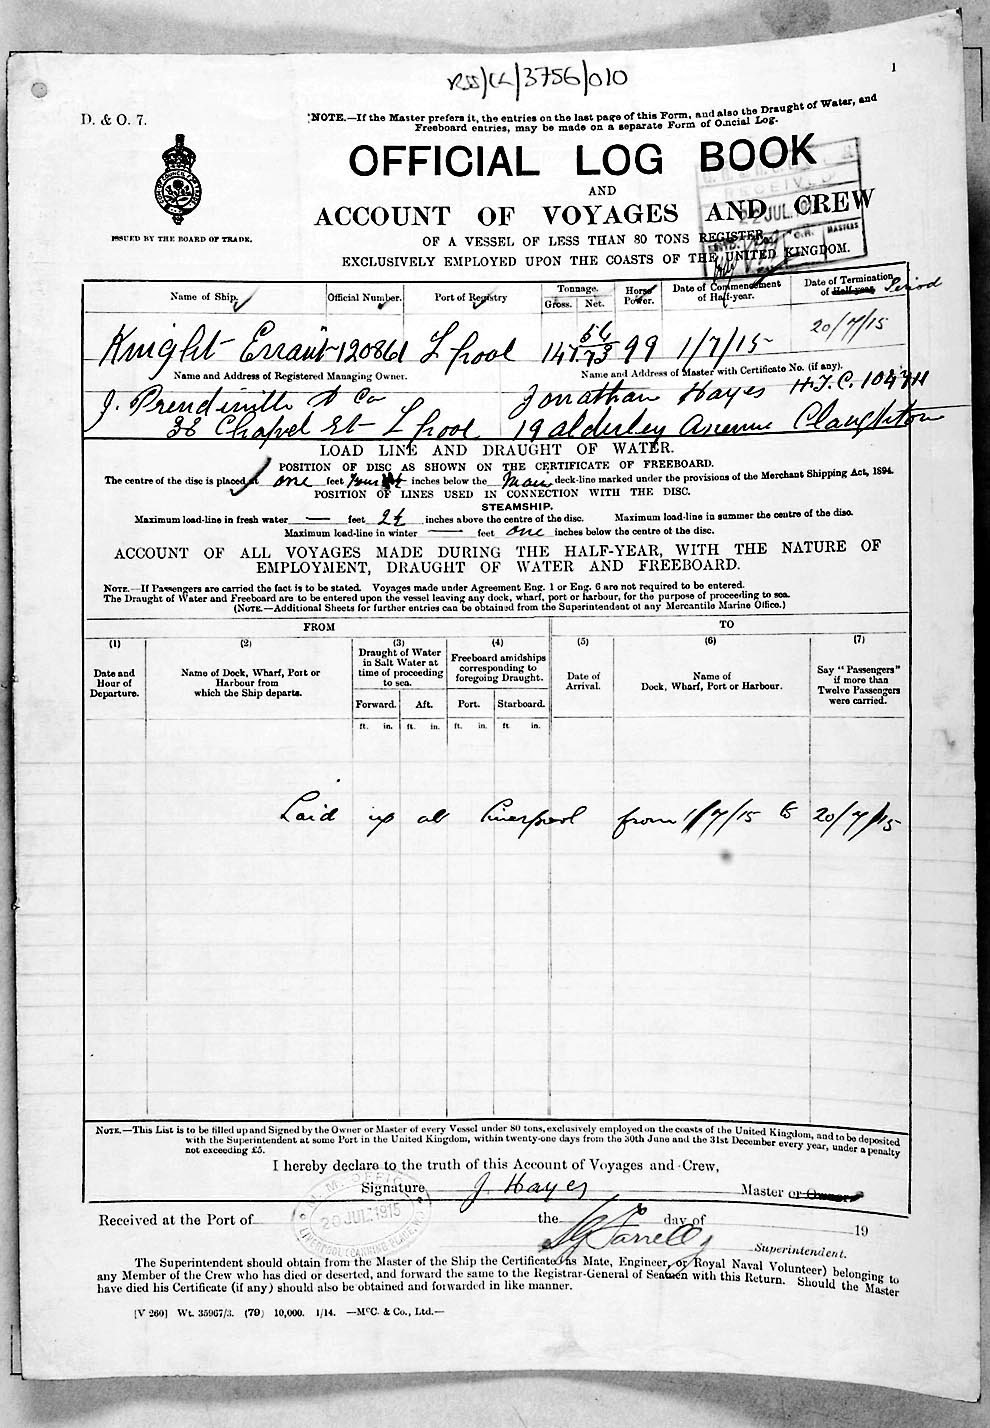 RSS/CL/3756/010
1
D. & O. 7.
NOTE.—If the Master prefers it, the entries on the last page of this Form, and also the Draught of Water, and
Freeboard entries, may be made on a separate Form of Official Log.
OFFICIAL LOG BOOK
AND
ACCOUNT OF VOYAGES AND CREW
OF A VESSEL OF LESS THAN 80 TONS REGISTER,
EXCLUSIVELY EMPLOYED UPON THE COASTS OF THE UNITED KINGDOM.
ISSUED BY THE BOARD OF TRADE.
RECEIVED
22 JUL
Name of Ship. Official Number. Port of Registry Tonnage. Gross. Net. Horse Power. Date of Commencement of Half-year. Date of Termination of Half-year Period
Knight Errant 120861 L'pool 147 56/73 99 1/7/15 20/7/15
Name and Address of Registered Managing Owner. Name and Address of Master with Certificate No. (if any).
J. Prendiville & Co Jonathan Hayes H.T.C.
38 Chapel St L'pool 19 Alderley Avenue Claughton
LOAD LINE AND DRAUGHT OF WATER.
POSITION OF DISC AS SHOWN ON THE CERTIFICATE OF FREEBOARD.
The centre of the disc is placed at one feet inches below the Main deck-line marked under the provisions of the Merchant Shipping Act, 1894.
POSITION OF LINES USED IN CONNECTION WITH THE DISC.
STEAMSHIP.
Maximum load-line in fresh water — feet 2½ inches above the centre of the disc. Maximum load-line in summer the centre of the disc.
Maximum load-line in winter — feet one inches below the centre of the disc.
ACCOUNT OF ALL VOYAGES MADE DURING THE HALF-YEAR, WITH THE NATURE OF
EMPLOYMENT, DRAUGHT OF WATER AND FREEBOARD.
NOTE.—If Passengers are carried the fact is to be stated. Voyages made under Agreement Eng. 1 or Eng. 6 are not required to be entered.
The Draught of Water and Freeboard are to be entered upon the vessel leaving any dock, wharf, port or harbour, for the purpose of proceeding to sea.
(NOTE.—Additional Sheets for further entries can be obtained from the Superintendent of any Mercantile Marine Office.)
FROM TO
(1) (2) (3) (4) (5) (6) (7)
Date and Hour of Departure.
Name of Dock, Wharf, Port or Harbour from which the Ship departs.
Draught of Water in Salt Water at time of proceeding to sea.
Freeboard amidships corresponding to foregoing Draught.
Date of Arrival.
Name of Dock, Wharf, Port or Harbour.
Say "Passengers" if more than Twelve Passengers were carried.
Forward. Aft. Port. Starboard.
ft. in. ft. in. ft. in. ft. in.
Laid up at Liverpool from 1/7/15 to 20/7/15
NOTE.—This List is to be filled up and Signed by the Owner or Master of every Vessel under 80 tons, exclusively employed on the coasts of the United Kingdom, and to be deposited
with the Superintendent at some Port in the United Kingdom, within twenty-one days from the 30th June and the 31st December every year, under a penalty
not exceeding £5.
I hereby declare to the truth of this Account of Voyages and Crew,
Signature J. Hayes Master or Owner
20 JUL 1915
Received at the Port of the day of 19
Farrell
Superintendent.
The Superintendent should obtain from the Master of the Ship the Certificate (as Mate, Engineer, or Royal Naval Volunteer) belonging to
any Member of the Crew who has died or deserted, and forward the same to the Registrar-General of Seamen with this Return. Should the Master
have died his Certificate (if any) should also be obtained and forwarded in like manner.
[V 260] Wt. 35967/3. (79) 10,000. 1/14. —McC. & Co., Ltd.—